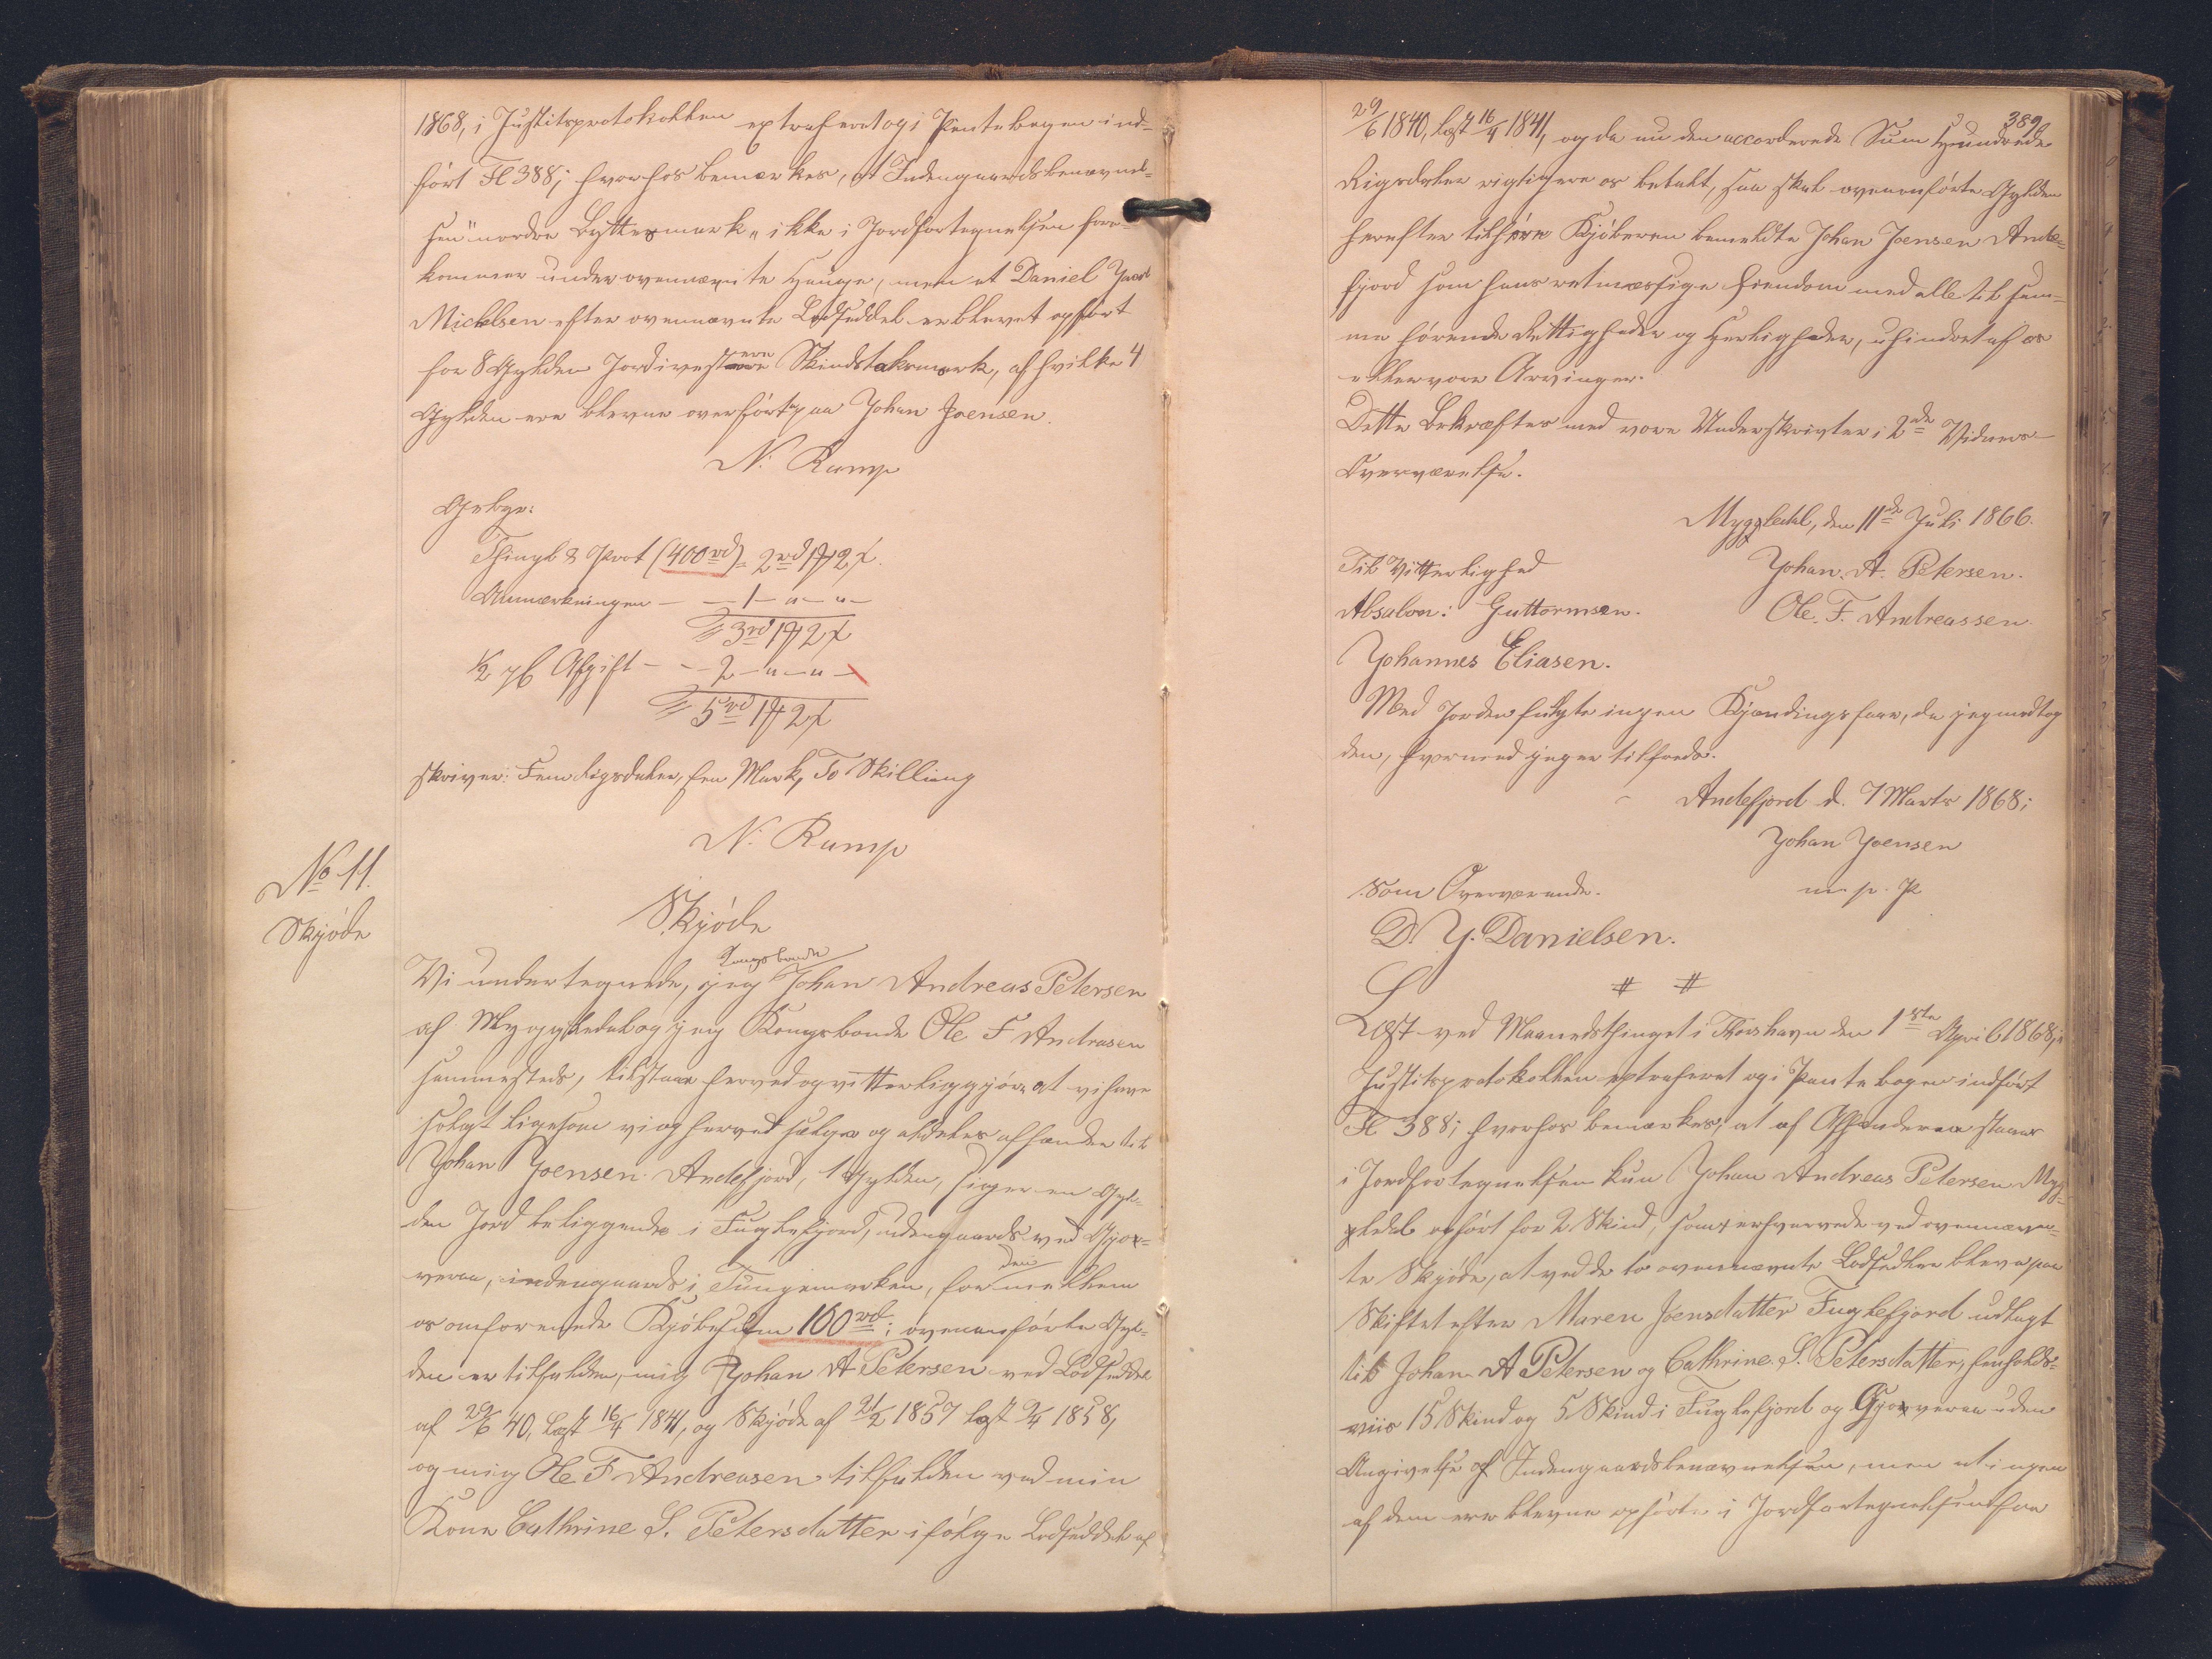 1868, i Justitsprotokollen extraheret og i Pantebogen ind-
ført Fl 388; hvorhos bemærkes, at Indengaardsbenævnel-
sen "nordre Byttesmark" ikke i Jordfortegnelsen fore-
kommer under ovennævnte Hauge, men at Daniel Joen
Michelsen efter ovennævnte Lodseddel er blevet opført
for 8 Gylden Jord i vestre Skindstaksmark, af hvilke 4
Gylden ere blevne overført paa Johan Joensen.
N. Rump
Gebyr:
Thingl & Prot (400 rd) = 2 rd 1 # 2 ß.
Anmærkningen - - 1 - " - " -
= 3 rd 1 # 2 ß
1/2 pC Afgift - - 2 - " - " -
= 5 rd 1 # 2 ß
skriver: Fem Rigsdaler, een Mark, To Skilling
N. Rump
No 11.
Skjøde
Skjøde
Kongsbonde
Vi undertegnede, jeg Johan Andreas Petersen
af Myggledal og jeg Kongsbonde Ole F Andreasen
sammesteds, tilstaar herved og vitterliggjøre at vi have
solgt ligesom vi og herved sælger og aldeles afhænder til
Johan Joensen Andefjord, 1 Gylden, siger en Gyl-
den Jord beliggende i Fuglefjord, udengaards ved Gjor-
veren, indengaards i Tungemarken, for den mellem
os omforenede Kjøbesum 100 rd; ovenanførte Gyl-
den er tilfalden, mig Johan A Petersen ved Lodseddel
af 29/6 40, læst 16/4 1841, og Skjøde af 21/2 1857 læst 9/4 1858,
og mig Ole F Andreasen tilfalden ved min
Kone Cathrine S. Petersdatter ifølge Lodseddel af
389.
29/6 1840, læst 16/4 1841, og da nu den accorderede Sum Hundrede
Rigsdaler rigtig er os betalt, saa skal ovenanførte Gylden
herefter tilhøre Kjøberen bemeldte Johan Joensen Ande-
fjord som hans retmæssige Eiendom med alle til sam-
me hørende Rettigheder og Herligheder, uhindret af os
eller vore Arvinger.
Dette Bekræftes med vore Underskrivter i 2de Vidners
Overværelse.
Myggledal, den 11te Juli 1866.
Til Vitterlighed
Johan. A. Petersen.
Absalon: Guttormsen.
Ole. F. Andreassen
Johannes Eliasen.
Med Jorden fulgte ingen Kjendingsfaar, da jeg modtog
den, hvormed jeg er tilfreds.
Andefjord d. 7 Marts 1868;
Johan Joensen
Som Overværende.
m. p. P
D. J. Danielsen.
# #
Læst ved Maanedsthinget i Thorshavn den 1ste April 1868, i
Justitsprotokollen extraheret og i Pantebogen indført
Fl 388; hvorhos bemærkes, at af Afhænderne staaer
i Jordfortegnelsen kun Johan Andreas Petersen Myg-
gledal opført for 2 Skind, som erhvervede ved ovennævn-
te Skjøde, at ved de to ovennævnte Lodsedler bleve paa
Skiftet efter Maren Joensdatter Fuglefjord udlagt
til Johan A Petersen og Cathrine. S. Petersdatter, henholds-
viis 15 Skind og 5 Skind i Fuglefjord og Gjorveren uden
Angivelse af Indengaardsbenævnelsen, men at ingen
af dem ere blevne opførte i Jordfortegnelsen for